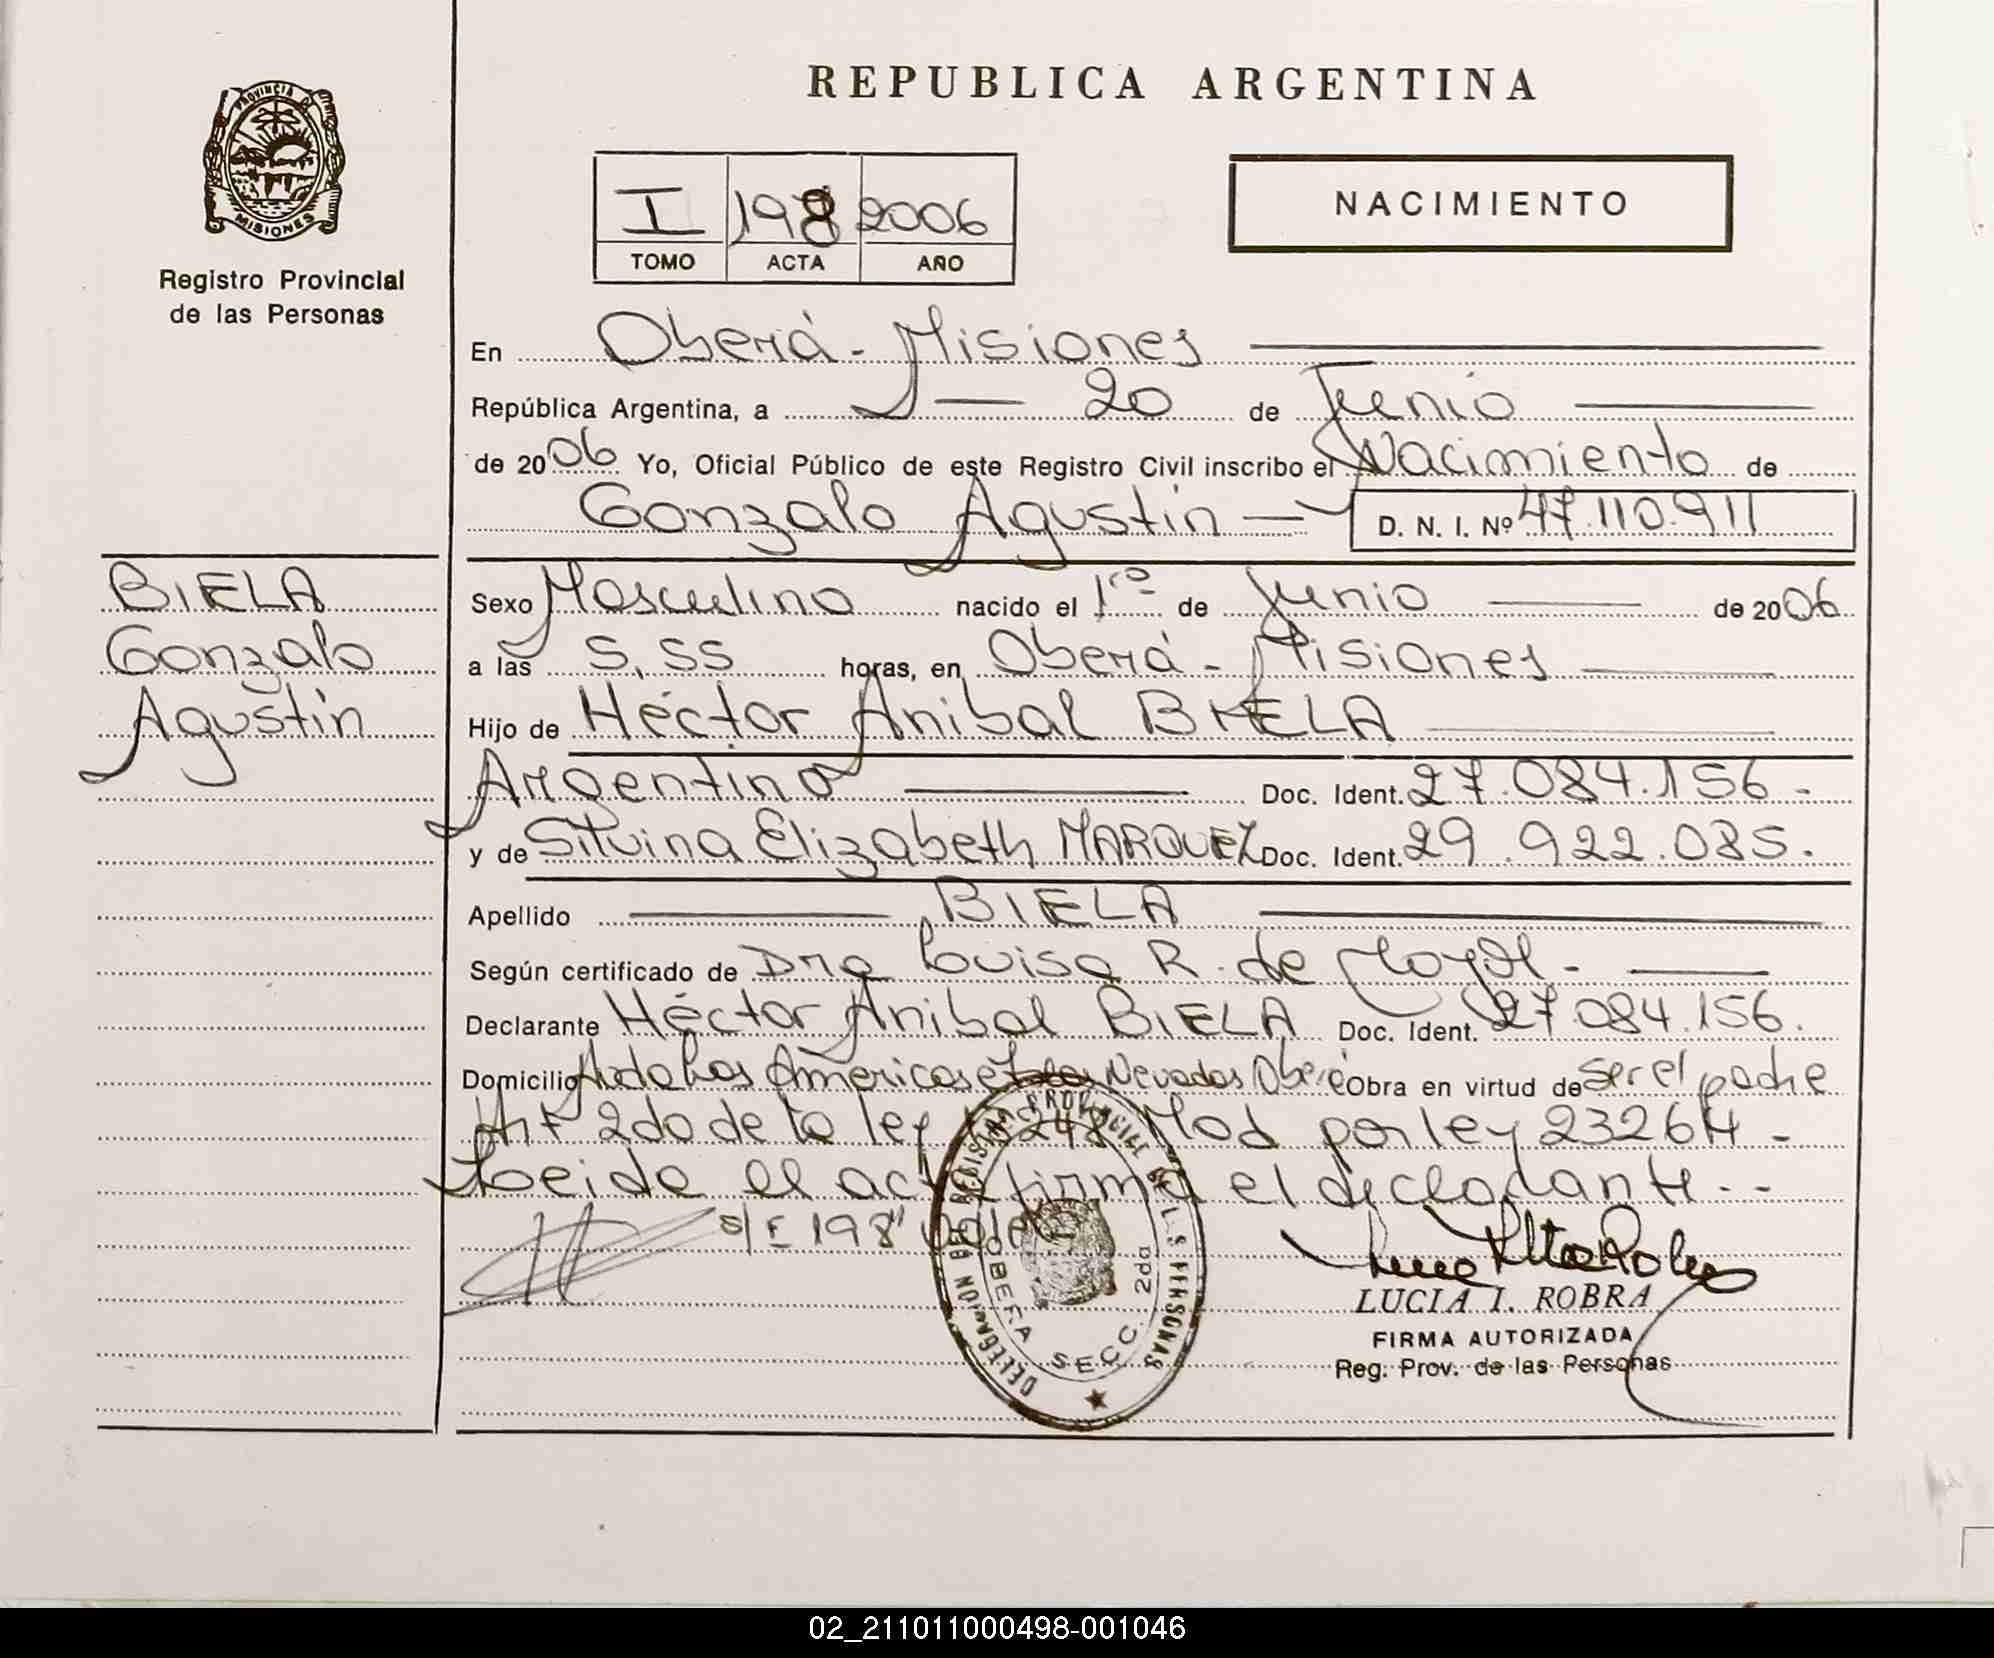 REPUBLICA ARGENTINA
PROVINCIA DE
MISIONES
Registro Provincial
de las Personas
I 198 2006
TOMO ACTA AÑO
NACIMIENTO
En Oberá - Misiones
República Argentina, a 20 de Junio
de 2006 Yo, Oficial Público de este Registro Civil inscribo el Nacimiento de
Gonzalo Agustín D. N. I. Nº 47.110.911
BIELA
Gonzalo
Agustín
Sexo Masculino nacido el 1ro de Junio de 2006
a las 5,55 horas, en Oberá - Misiones
Hijo de Héctor Anibal BIELA
Argentino Doc. Ident. 27.084.156 -
y de Silvina Elizabeth MARQUEZ Doc. Ident. 29.922.085.
Apellido BIELA
Según certificado de Dra Luisa R. de
Declarante Héctor Anibal BIELA Doc. Ident. 27.084.156.
Domicilio Avda Las Americas e Nevados Oberá Obra en virtud de ser el padre
Art 2do de la ley 18248 Mod por ley 23264 -
Leida el acta firma el declarante - -
s/r 198" Vale
DELEGACION DEL REGISTRO PROVINCIAL DE LAS PERSONAS
OBERA SECC. 2da
LUCIA I. ROBRA
FIRMA AUTORIZADA
Reg. Prov. de las Personas
02_211011000498-001046